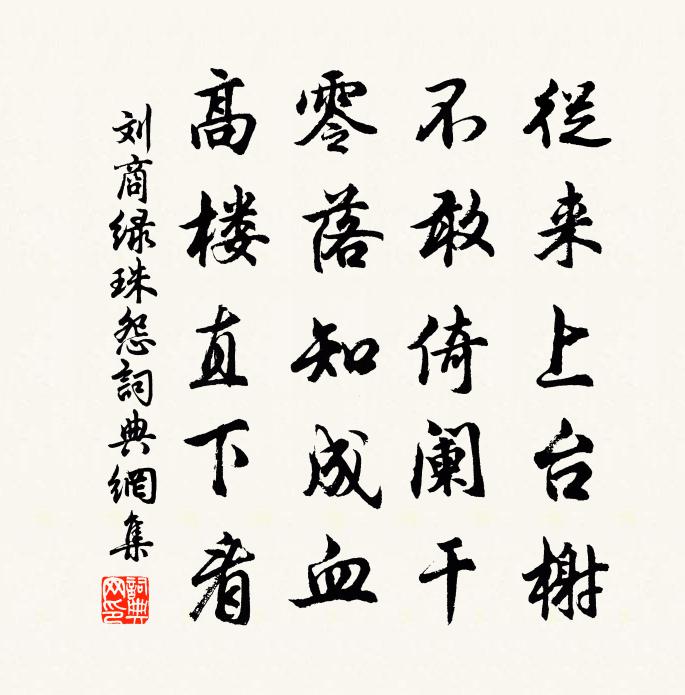 從来上台榭
不敢倚阑干
零落知成血
高楼直下看
刘商绿珠怨詞典網集
詞典網印